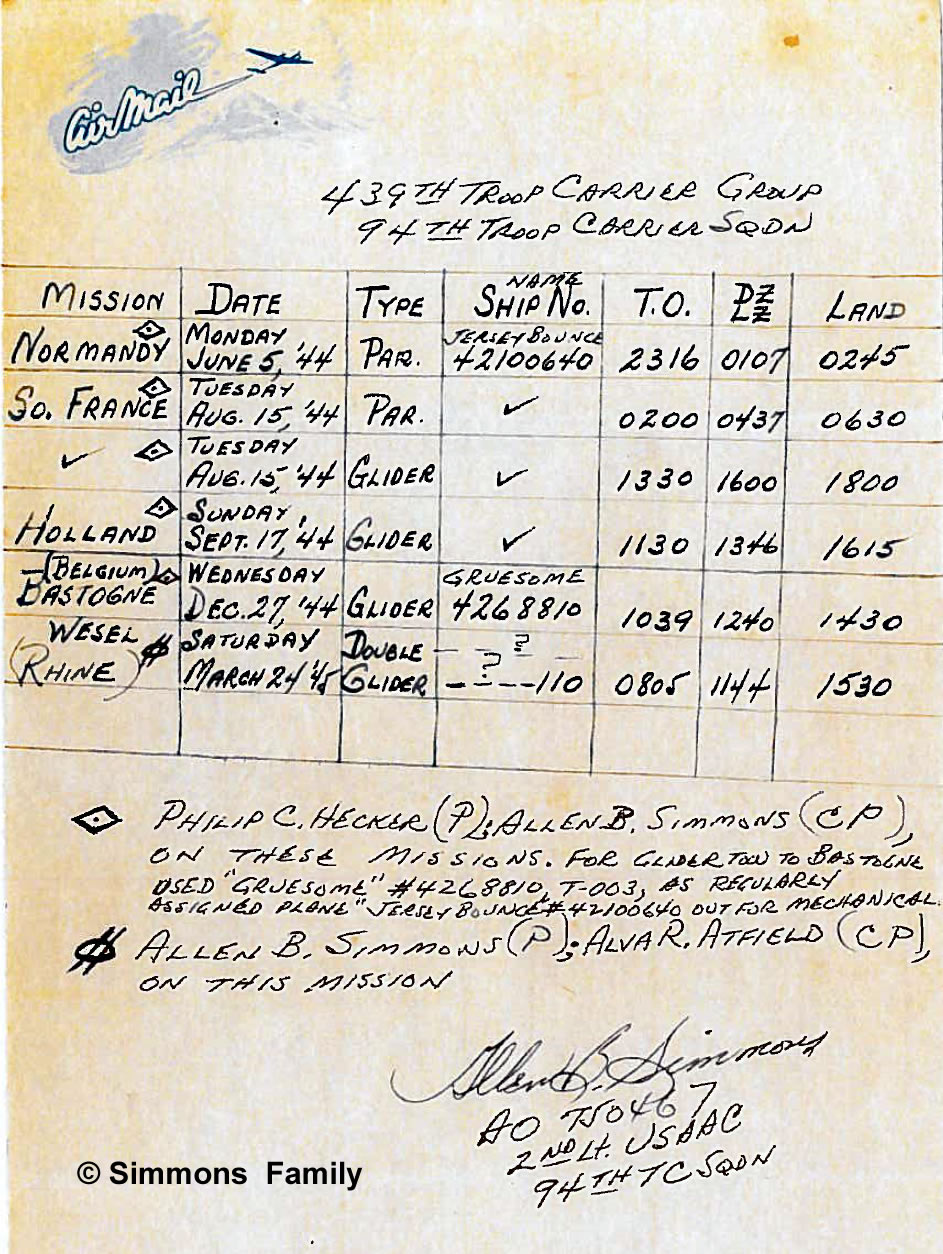 Air Mail
439TH TROOP CARRIER GROUP
94TH TROOP CARRIER SQDN
MISSION DATE TYPE NAME SHIP NO. T.O. DZ LZ LAND
NORMANDY MONDAY JUNE 5, '44 PAR. JERSEY BOUNCE 42100640 2316 0107 0245
SO. FRANCE TUESDAY AUG. 15, '44 PAR. ✓ 0200 0437 0630
✓ TUESDAY AUG. 15, '44 GLIDER ✓ 1330 1600 1800
HOLLAND SUNDAY, SEPT. 17, '44 GLIDER ✓ 1130 1346 1615
(BELGIUM) BASTOGNE WEDNESDAY DEC. 27, '44 GLIDER GRUESOME 4268810 1039 1240 1430
WESEL (RHINE) SATURDAY MARCH 24 '45 DOUBLE GLIDER — — ? — — ? — — 110 0805 1144 1530
PHILIP C. HECKER (P); ALLEN B. SIMMONS (CP),
ON THESE MISSIONS. FOR GLIDER TOW TO BASTOGNE
USED "GRUESOME" #4268810, T-003, AS REGULARLY
ASSIGNED PLANE "JERSEY BOUNCE" #42100640 OUT FOR MECHANICAL.
ALLEN B. SIMMONS (P); ALVA R. ATFIELD (CP),
ON THIS MISSION
Allen B. Simmons
AO 750467
2ND LT. USAAC
94TH TC SQDN
© Simmons Family